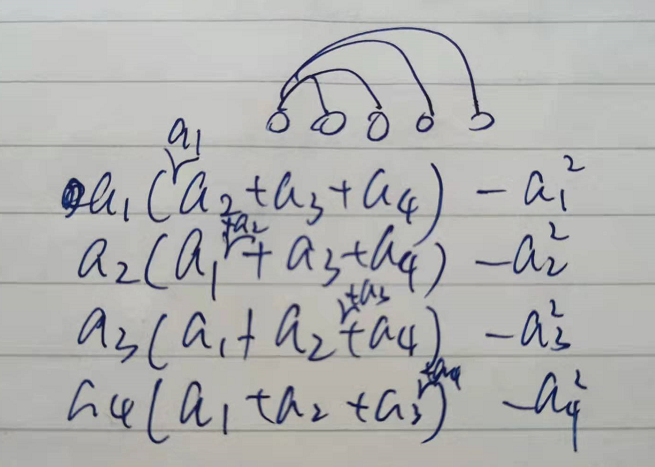 a₁
a₁(a₂+a₃+a₄) -a₁²
+a₂
a₂(a₁+a₃+a₄) -a₂²
+a₃
a₃(a₁+a₂+a₄) -a₃²
+a₄
a₄(a₁+a₂+a₃) -a₄²